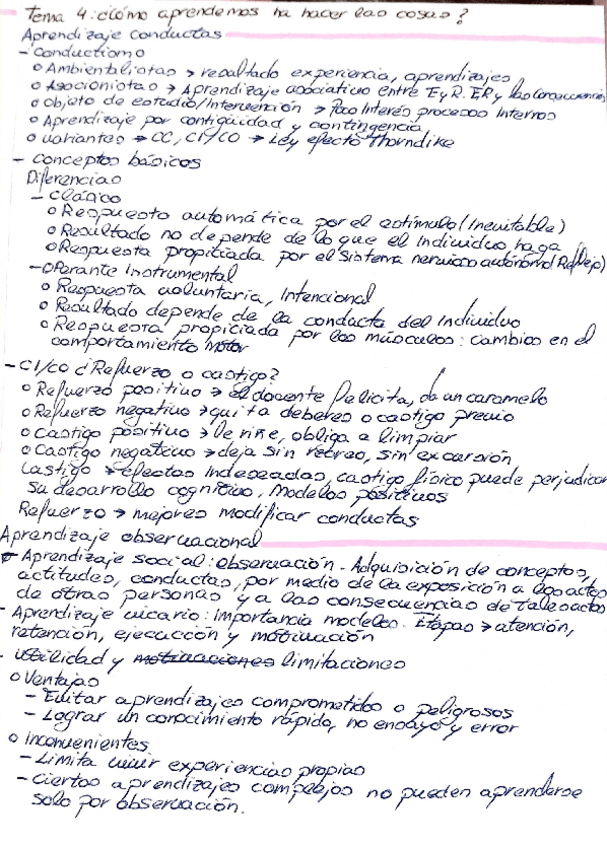 Tema 4: ¿Cómo aprendemos ha hacer las cosas?
Aprendizaje conductas
- Conductismo
o Ambientalistas → resultado experiencia, aprendizajes
o Asocionistas → Aprendizaje asociativo entre E y R. ER y las consecuencias
o Objeto de estudio/Intervención → Poco Interés procesos Internos
o Aprendizaje por contigüidad y contingencia
o variantes → CC, CI/CO → Ley efecto Thorndike
- conceptos básicos
Diferencias
- Clásico
o Respuesta automática por el estímulo (Inevitable)
o Resultado no depende de lo que el Individuo haga
o Respuesta propiciada por el Sistema nervioso autónomo (Reflejo)
- Operante Instrumental
o Respuesta voluntaria, Intencional
o Resultado depende de la conducta del Individuo
o Respuesta propiciada por los músculos: cambios en el
comportamiento motor
- CI/CO ¿Refuerzo o castigo?
o Refuerzo positivo → el docente felicita, da un caramelo
o Refuerzo negativo → quita deberes o castigo previo
o Castigo positivo → le riñe, obliga a limpiar
o Castigo negativo → deja sin recreo, sin excursión
Castigo → efectos Indeseados, castigo físico puede perjudicar
su desarrollo cognitivo, Modelos positivos
Refuerzo → mejores modificar conductas
Aprendizaje observacional
- Aprendizaje social: observación - Adquisición de conceptos,
actitudes, conductas, por medio de la exposición a los actos
de otras personas y a las consecuencias de tales actos
- Aprendizaje vicario: Importancia modelos. Etapas → atención,
retención, ejecucción y motivación
- utilidad y motivaciones limitaciones
o Ventajas
- Evitar aprendizajes comprometidos o peligrosos
- Lograr un conocimiento rápido, no ensayo y error
o Inconvenientes
- Limita vivir experiencias propias
- Ciertos aprendizajes complejos no pueden aprenderse
solo por observación.